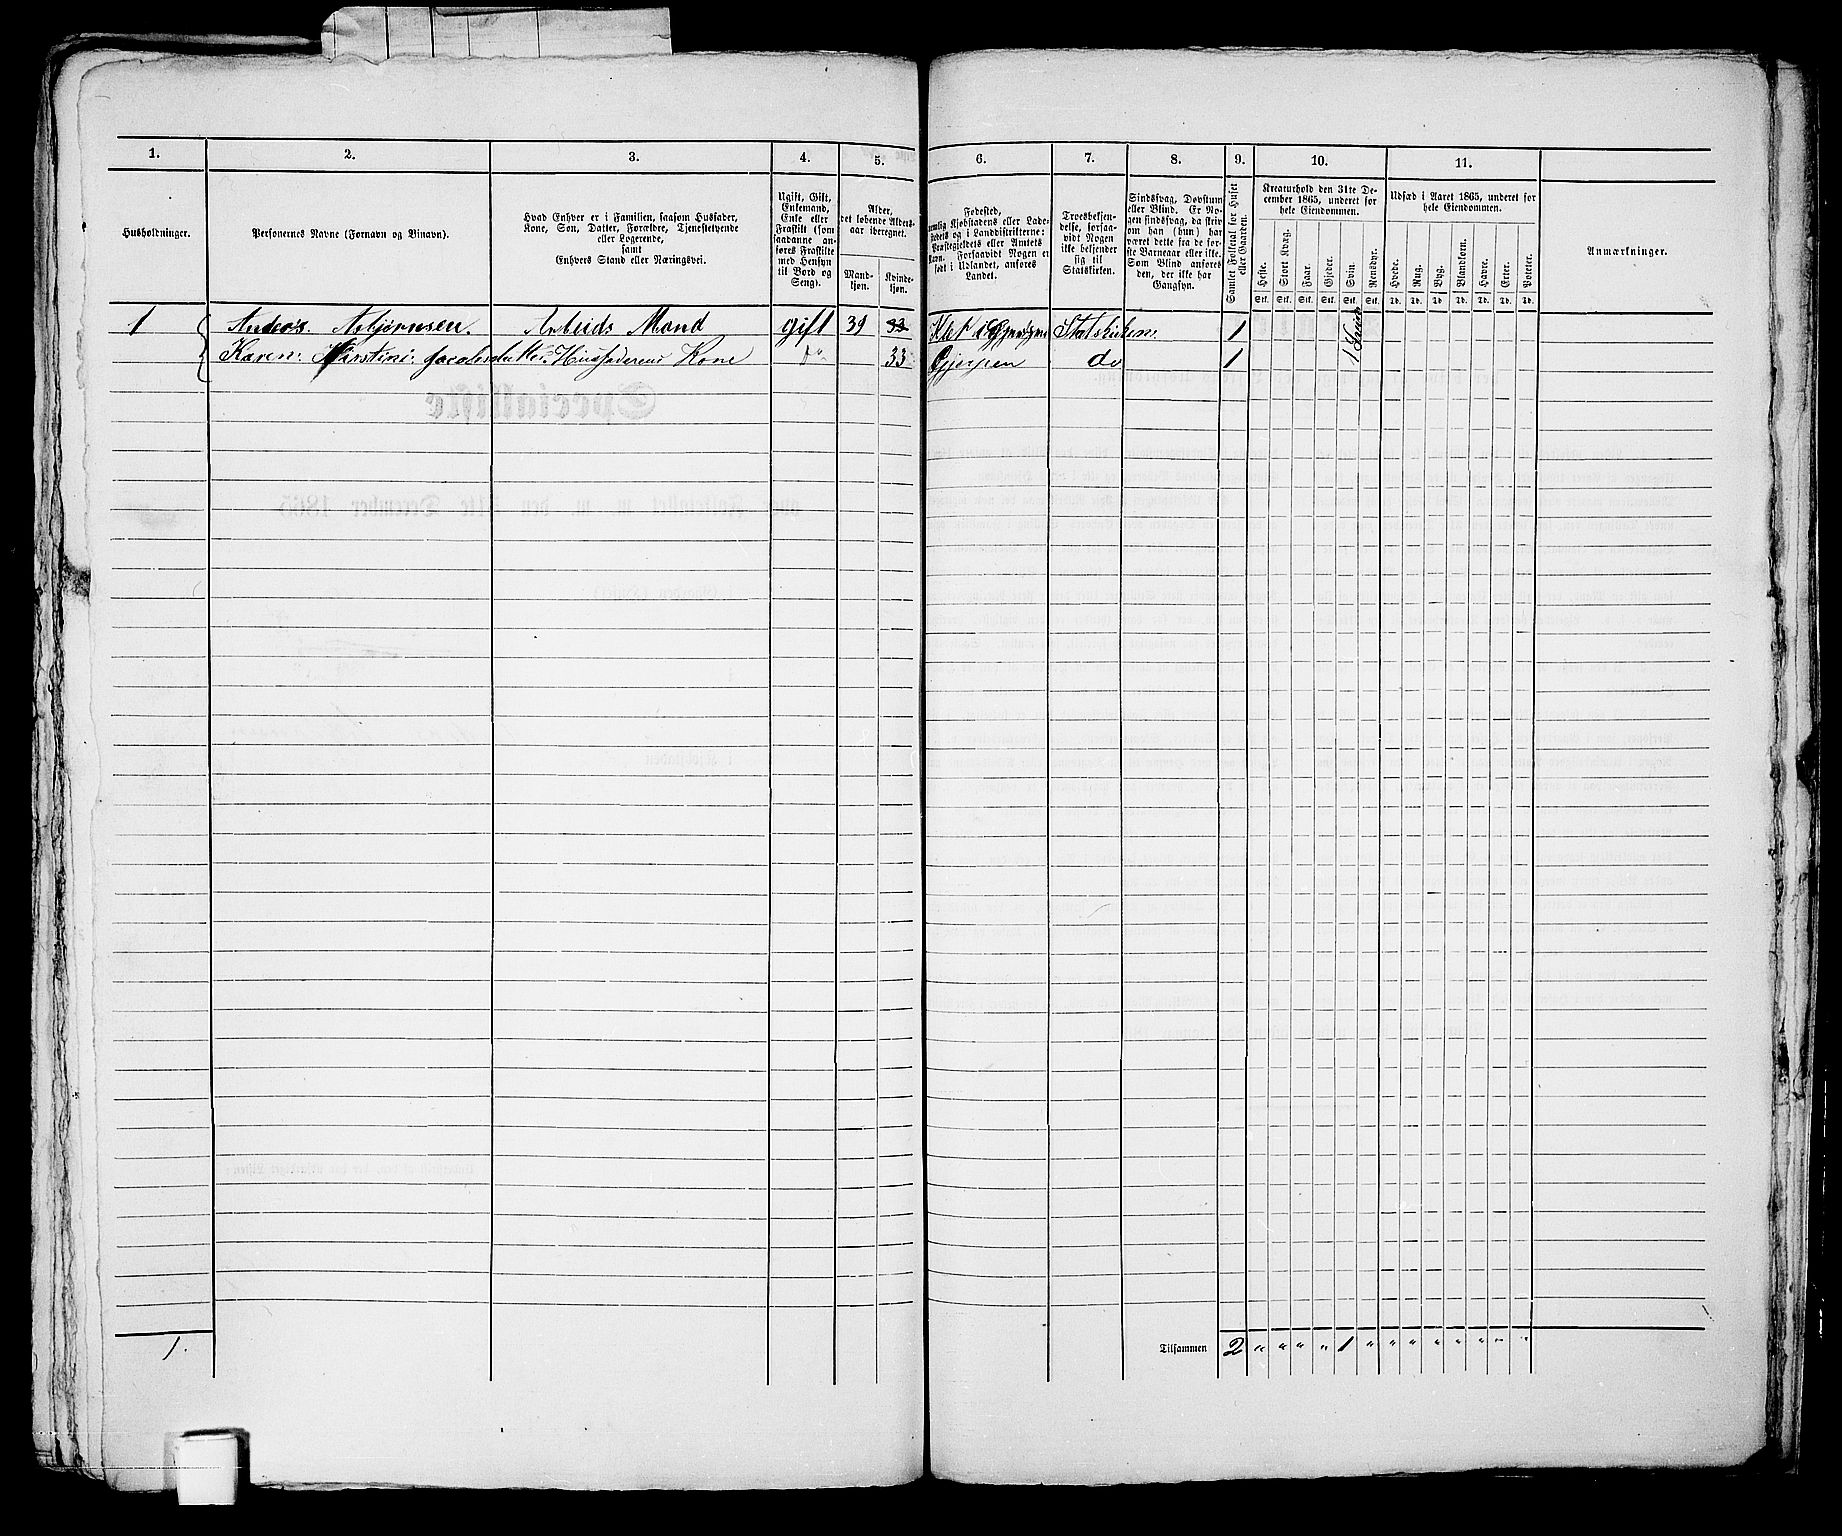 1. 2. 3. 4. 5. 6. 7. 8. 9. 10. 11.
Husholdninger.
Personernes Navne (Fornavn og Binavn).
Hvad Enhver er i Familien, saasom Husfader,
Kone, Søn, Datter, Forældre, Tjenestetyende
eller Logerende,
samt
Enhvers Stand eller Næringsvei.
Ugift, Gift,
Enkemand,
Enke eller
Fraskilt (som
saadanne an-
føres Fraskilte
med Hensyn
til Bord og
Seng).
Alder,
det løbende Alders-
aar iberegnet.
Mand-
kjøn.
Kvinde-
kjøn.
Fødested,
nemlig Kjøbstadens eller Lade-
stedets og i Landdistrikterne:
Præstegjeldets eller Amtets
Navn. Forsaavidt Nogen er
født i Udlandet, anføres
Landet.
Troesbekjen-
delse, forsaa-
vidt Nogen
ikke bekjender
sig til
Statskirken.
Sindssvag, Døvstum
eller Blind. Er No-
gen sindssvag, da skriv
om han (hun) har
været dette fra de før-
ste Barneaar eller ikke.
Som Blind anføres
den, der ikke har
Gangsyn.
Samlet Folketal for Huset
eller Gaarden.
Kreaturhold den 31te De-
cember 1865, underet for
hele Eiendommen.
Heste. Stort Kvæg. Faar. Gjeder. Svin. Rensdyr.
Stk. Stk. Stk. Stk. Stk. Stk.
Udsæd i Aaret 1865, underet for
hele Eiendommen.
Hvede. Rug. Byg. Blandkorn. Havre. Erter. Poteter.
Td. Td. Td. Td. Td. Td. Td.
Anmærkninger.
1 Anders. Asbjørnsen. Arbeids Mand gift 39 33 Statskirken. 1
Karen. Kirstine. Jacobsdatter. Husfaderens Kone do 33 Gjerpen do 1 1
1.
Tilsammen 2 " " " " 1 " " " " " " " "